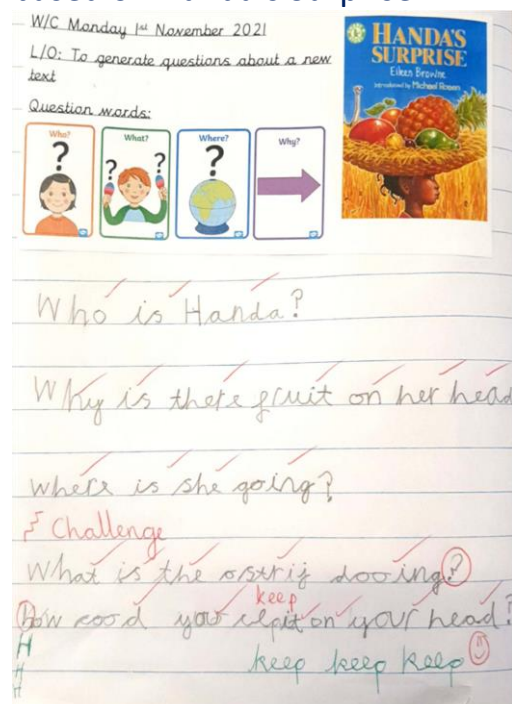 W/C Monday 1st November 2021
L/O: To generate questions about a new
text
Question words:
Who?
What?
Where?
Why?
HANDA'S
SURPRISE
Eileen Browne
introduced by Michael Rosen
Who is Handa?
Why is there fruit on her head
Where is she going?
Challenge
What is the ostrij dooing?
keep
How cood you it on your head?
H
H
H
keep keep keep